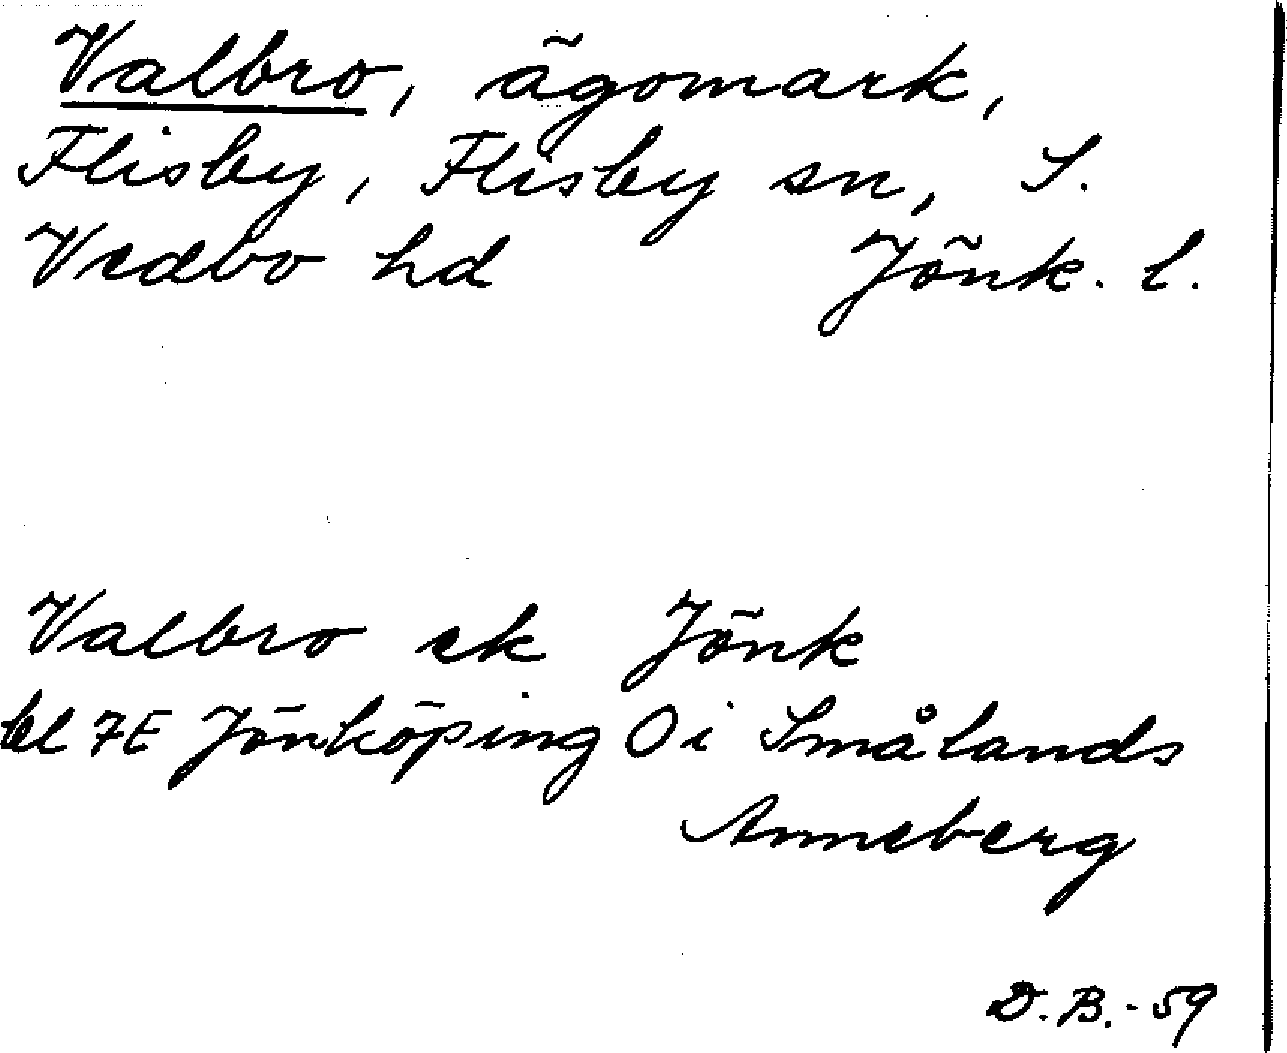 Valbro, ägomark,
Flisby, Flisby sn, S.
Vedbo hd Jönk. l.
Valbro ek Jönk
bl 7E Jönköping O i Smålands
Anneberg
D.B.-59